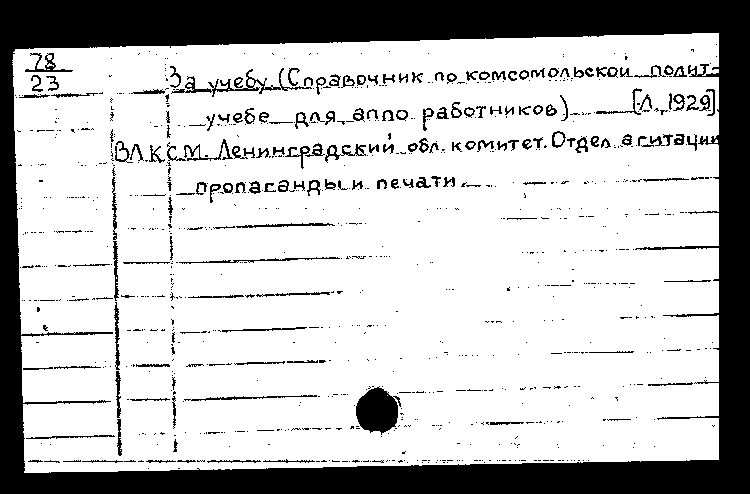 78
23
За учебу. (Справочник по комсомольской полит-
учебе для аппо работников) [Л., 1929]
ВЛКСМ. Ленинградский обл. комитет. Отдел агитации
пропаганды и печати.